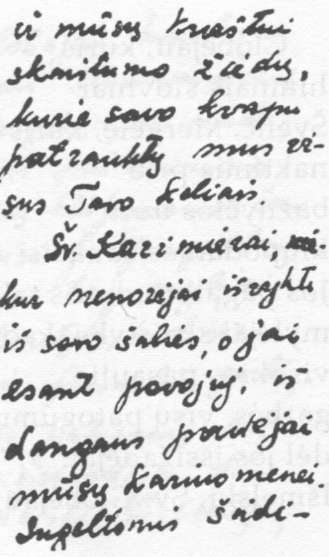 ir mūsų kraštui
skaistumo žiedų,
kurie savo kvapu
patrauktų mus vi-
sus Tavo keliais.
Šv. Kazimierai, nie-
kur nenorėjai išvykti
iš savo šalies, o jai
esant pavojuj, iš
dangaus padėjai
mūsų kariuomenei.
žadi-